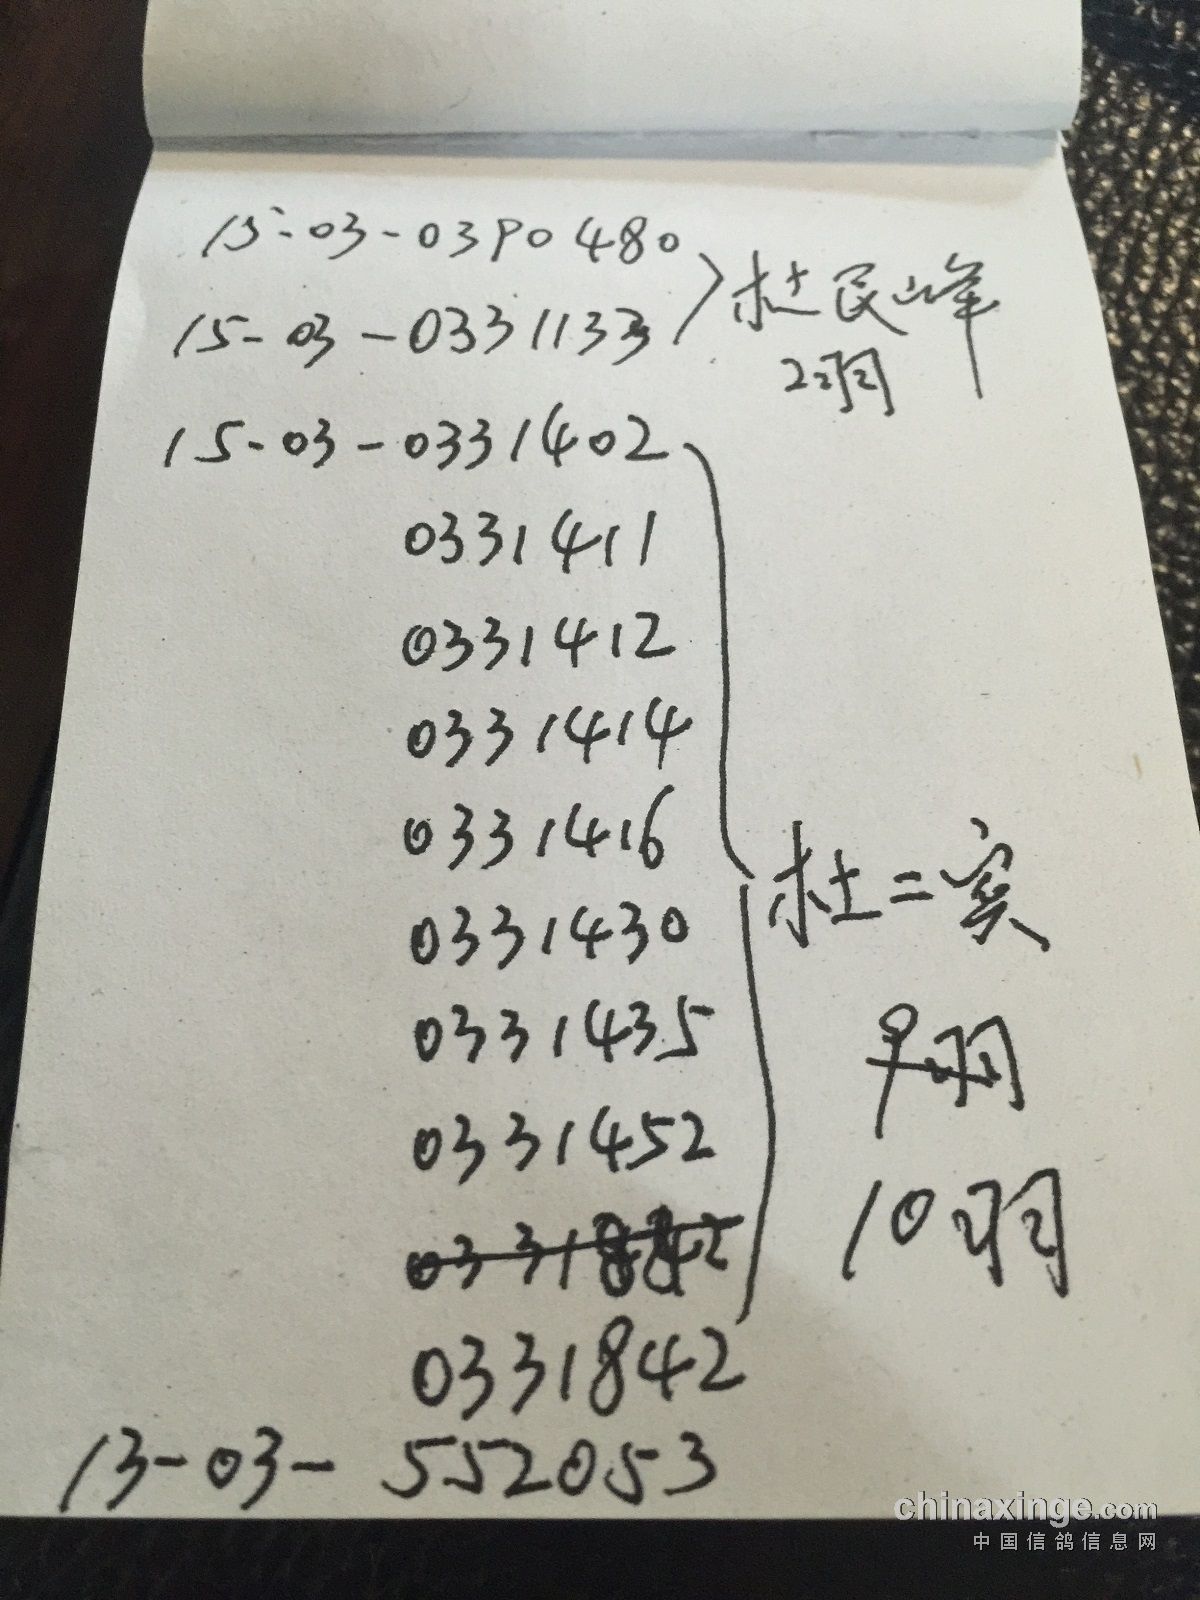 15-03-0390480
15-03-0331133
杜民峰
2羽
15-03-0331402
0331411
0331412
0331414
0331416
0331430
0331435
0331452
0331842
0331842
13-03-552053
杜二实
9羽
10羽
chinaxinge.com
中国信鸽信息网